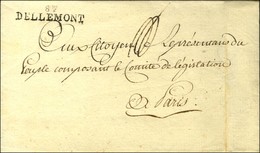 87
DELLEMONT
Aux Citoyens Représentans du
Peuple composant le Comité de législation
à Paris.